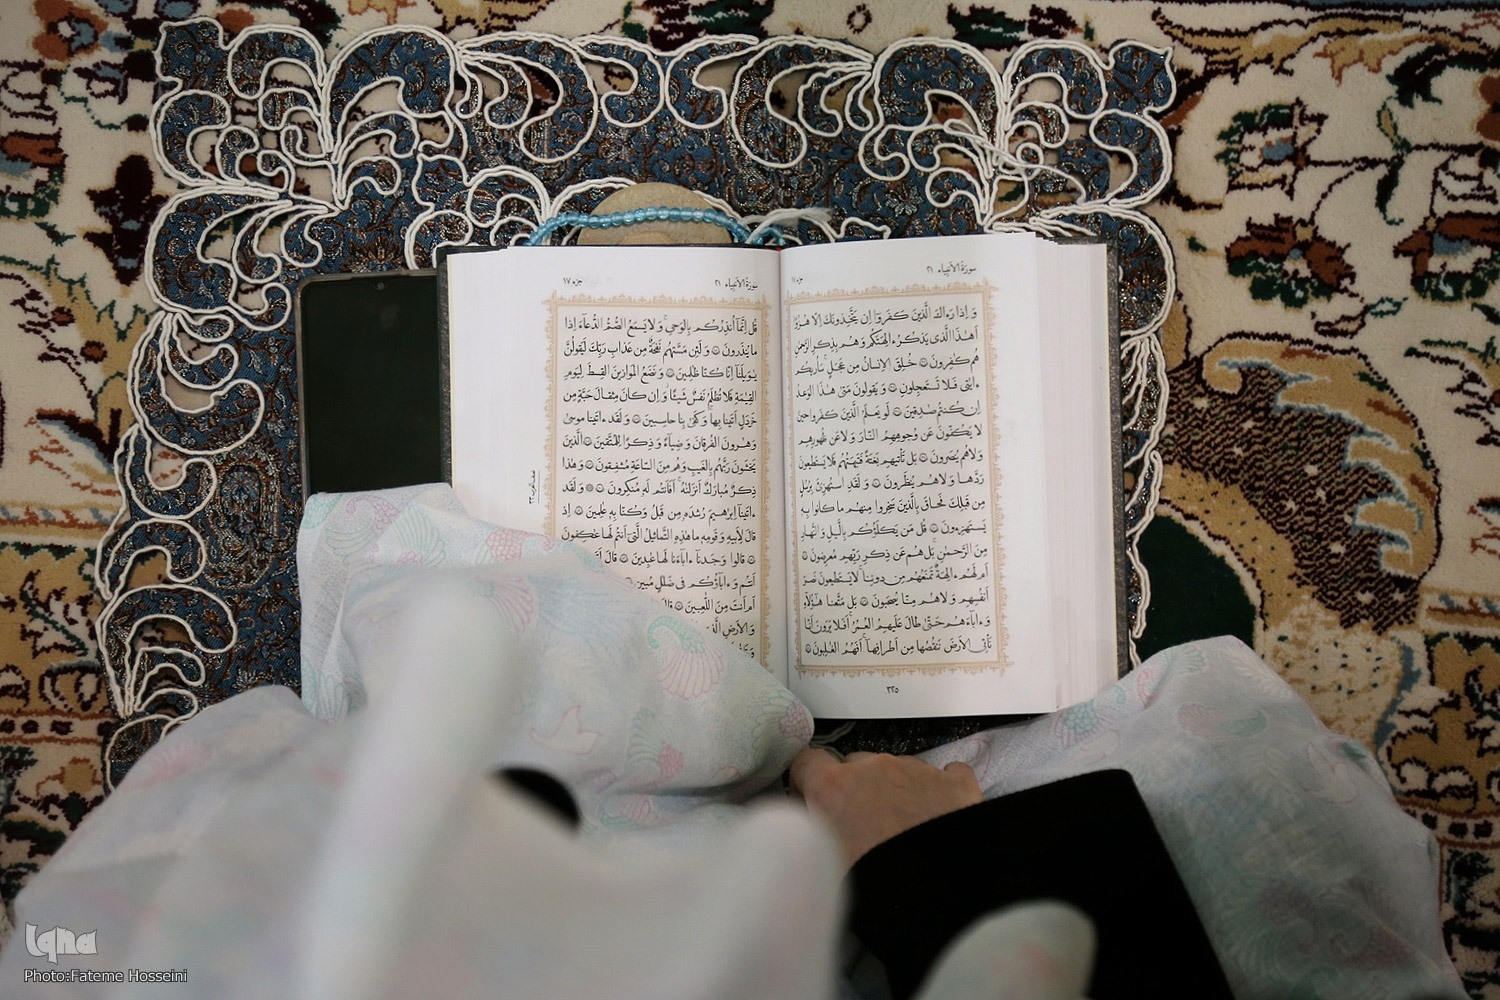 سورَةُ الأنبِياء ٢١
جزء ١٧
وَ إِذا رَءاكَ الَّذينَ كَفَرُوا إِن يَتَّخِذونَكَ إِلّا هُزُوًا
أَهٰذَا الَّذى يَذكُرُ ءالِهَتَكُم وَ هُم بِذِكرِ الرَّحمٰنِ
هُم كٰفِرونَ ۝ خُلِقَ الإِنسانُ مِن عَجَلٍ سَأُريكُم
ءايٰتى فَلا تَستَعجِلونِ ۝ وَ يَقولونَ مَتىٰ هٰذَا الوَعدُ
إِن كُنتُم صٰدِقينَ ۝ لَو يَعلَمُ الَّذينَ كَفَروا حينَ
لا يَكُفّونَ عَن وُجوهِهِمُ النّارَ وَ لا عَن ظُهورِهِم
وَ لا هُم يُنصَرونَ ۝ بَل تَأتيهِم بَغتَةً فَتَبهَتُهُم فَلا يَستَطيعونَ
رَدَّها وَ لا هُم يُنظَرونَ ۝ وَ لَقَدِ استُهزِئَ بِرُسُلٍ
مِن قَبلِكَ فَحاقَ بِالَّذينَ سَخِروا مِنهُم ما كانوا بِهِ
يَستَهزِءونَ ۝ قُل مَن يَكلَؤُكُم بِاللَّيلِ وَ النَّهارِ
مِنَ الرَّحمٰنِ بَل هُم عَن ذِكرِ رَبِّهِم مُعرِضونَ ۝
أَم لَهُم ءالِهَةٌ تَمنَعُهُم مِن دونِنا لا يَستَطيعونَ نَصرَ
أَنفُسِهِم وَ لا هُم مِنّا يُصحَبونَ ۝ بَل مَتَّعنا هٰؤُلاءِ
وَ ءاباءَهُم حَتّىٰ طالَ عَلَيهِمُ العُمُرُ أَفَلا يَرَونَ أَنّا
نَأتِى الأَرضَ نَنقُصُها مِن أَطرافِها أَفَهُمُ الغٰلِبونَ ۝
٣٢٥
سورَةُ الأنبِياء ٢١
جزء ١٧
قُل إِنَّما أُنذِرُكُم بِالوَحىِ وَ لا يَسمَعُ الصُّمُّ الدُّعاءَ إِذا
ما يُنذَرونَ ۝ وَ لَئِن مَسَّتهُم نَفحَةٌ مِن عَذابِ رَبِّكَ لَيَقولُنَّ
يٰوَيلَنا إِنّا كُنّا ظٰلِمينَ ۝ وَ نَضَعُ المَوازينَ القِسطَ لِيَومِ
القِيٰمَةِ فَلا تُظلَمُ نَفسٌ شَيئًا وَ إِن كانَ مِثقالَ حَبَّةٍ مِن
خَردَلٍ أَتَينا بِها وَ كَفىٰ بِنا حاسِبينَ ۝ وَ لَقَد ءاتَينا موسىٰ
وَ هٰرونَ الفُرقانَ وَ ضِياءً وَ ذِكرًا لِلمُتَّقينَ ۝ الَّذينَ
يَخشَونَ رَبَّهُم بِالغَيبِ وَ هُم مِنَ السّاعَةِ مُشفِقونَ ۝ وَ هٰذا
ذِكرٌ مُبارَكٌ أَنزَلنٰهُ أَفَأَنتُم لَهُ مُنكِرونَ ۝ وَ لَقَد
ءاتَينا إِبرٰهيمَ رُشدَهُ مِن قَبلُ وَ كُنّا بِهِ عٰلِمينَ ۝ إِذ
قالَ لِأَبيهِ وَ قَومِهِ ما هٰذِهِ التَّماثيلُ الَّتى أَنتُم لَها عٰكِفونَ
۝ قالوا وَجَدنا ءاباءَنا لَها عٰبِدينَ ۝ قالَ
أَنتُم وَ ءاباؤُكُم فى ضَلٰلٍ مُبينٍ
أَم أَنتَ مِنَ اللّٰعِبينَ ۝ قالَ
وَ الأَرضِ
Iqna
Photo:Fateme Hosseini